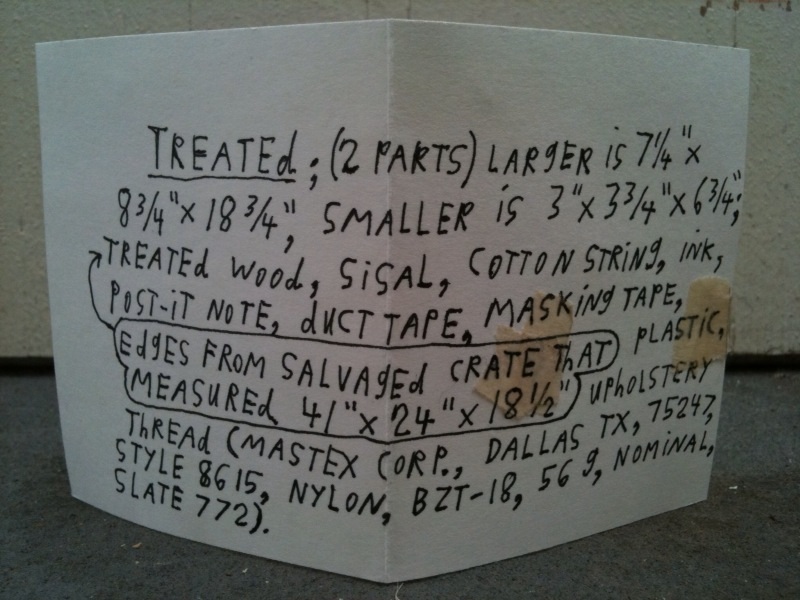 TREATEd; (2 PARTS) LARgER iS 7 1/4" x
8 3/4" x 18 3/4", SMALLER iS 3" x 3 3/4" x 6 3/4";
TREATEd wood, SiSAL, COTTON STRiNg, iNK,
POST-iT NOTE, dUCT TAPE, MASKiNg TAPE,
EdgES FROM SALVAgEd CRATE ThAT PLASTiC,
MEASUREd 41" x 24" x 18 1/2" UPhOLSTERY
ThREAd (MASTEX CORP., DALLAS TX, 75247,
STYLE 8615, NYLON, BZT-18, 56 g, NOMiNAL,
SLATE 772).